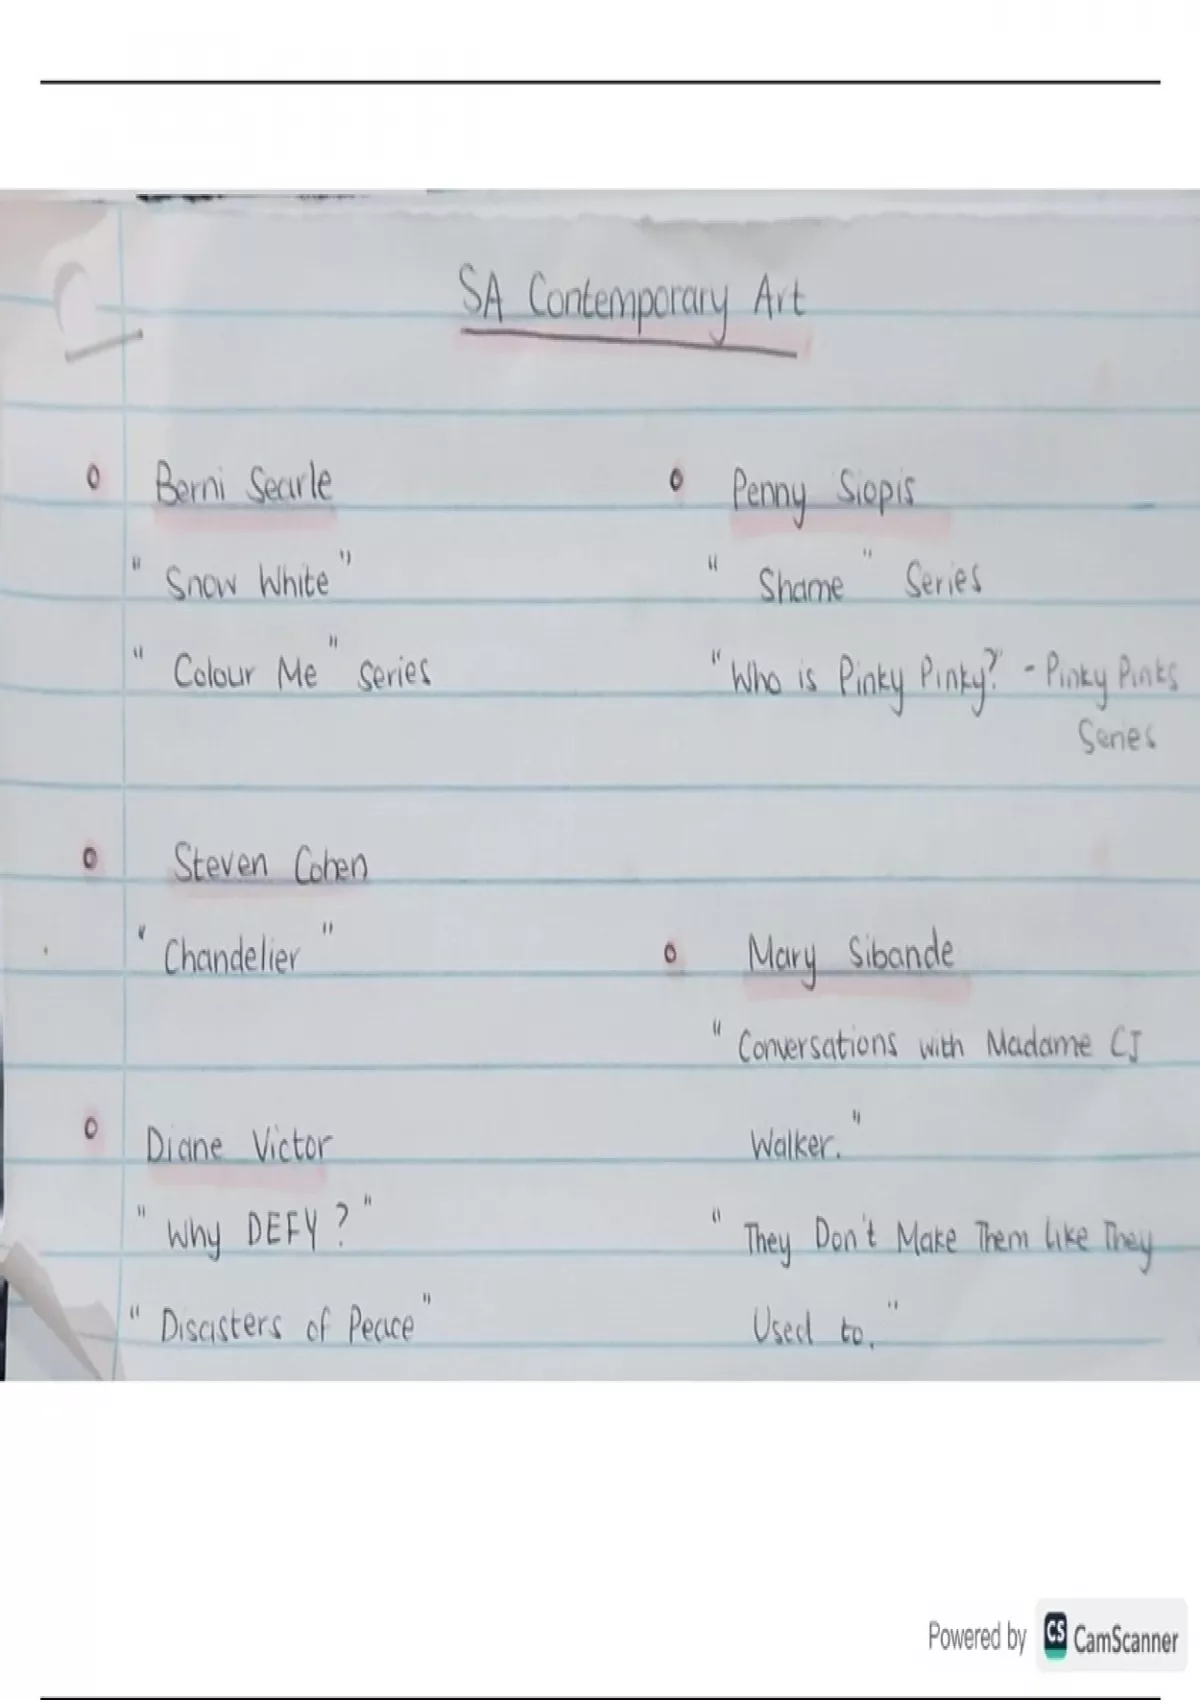 SA Contemporary Art
Berni Searle
"Snow White"
"Colour Me" series
Steven Cohen
"Chandelier"
Diane Victor
"Why DEFY?"
"Disasters of Peace"
Penny Siopis
"Shame" Series
"Who is Pinky Pinky?" - Pinky Pinks
Series
Mary Sibande
"Conversations with Madame CJ
Walker."
"They Don't Make Them Like They
Used to."
Powered by CS CamScanner